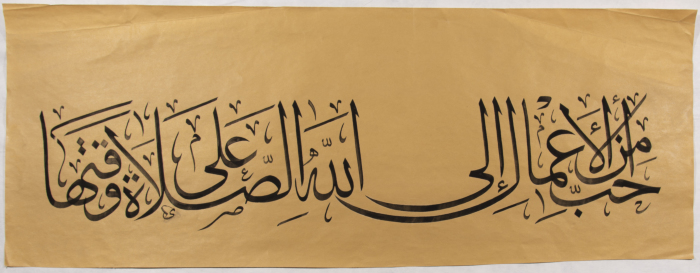 من أحب الأعمال إلى الله الصلاة على وقتها